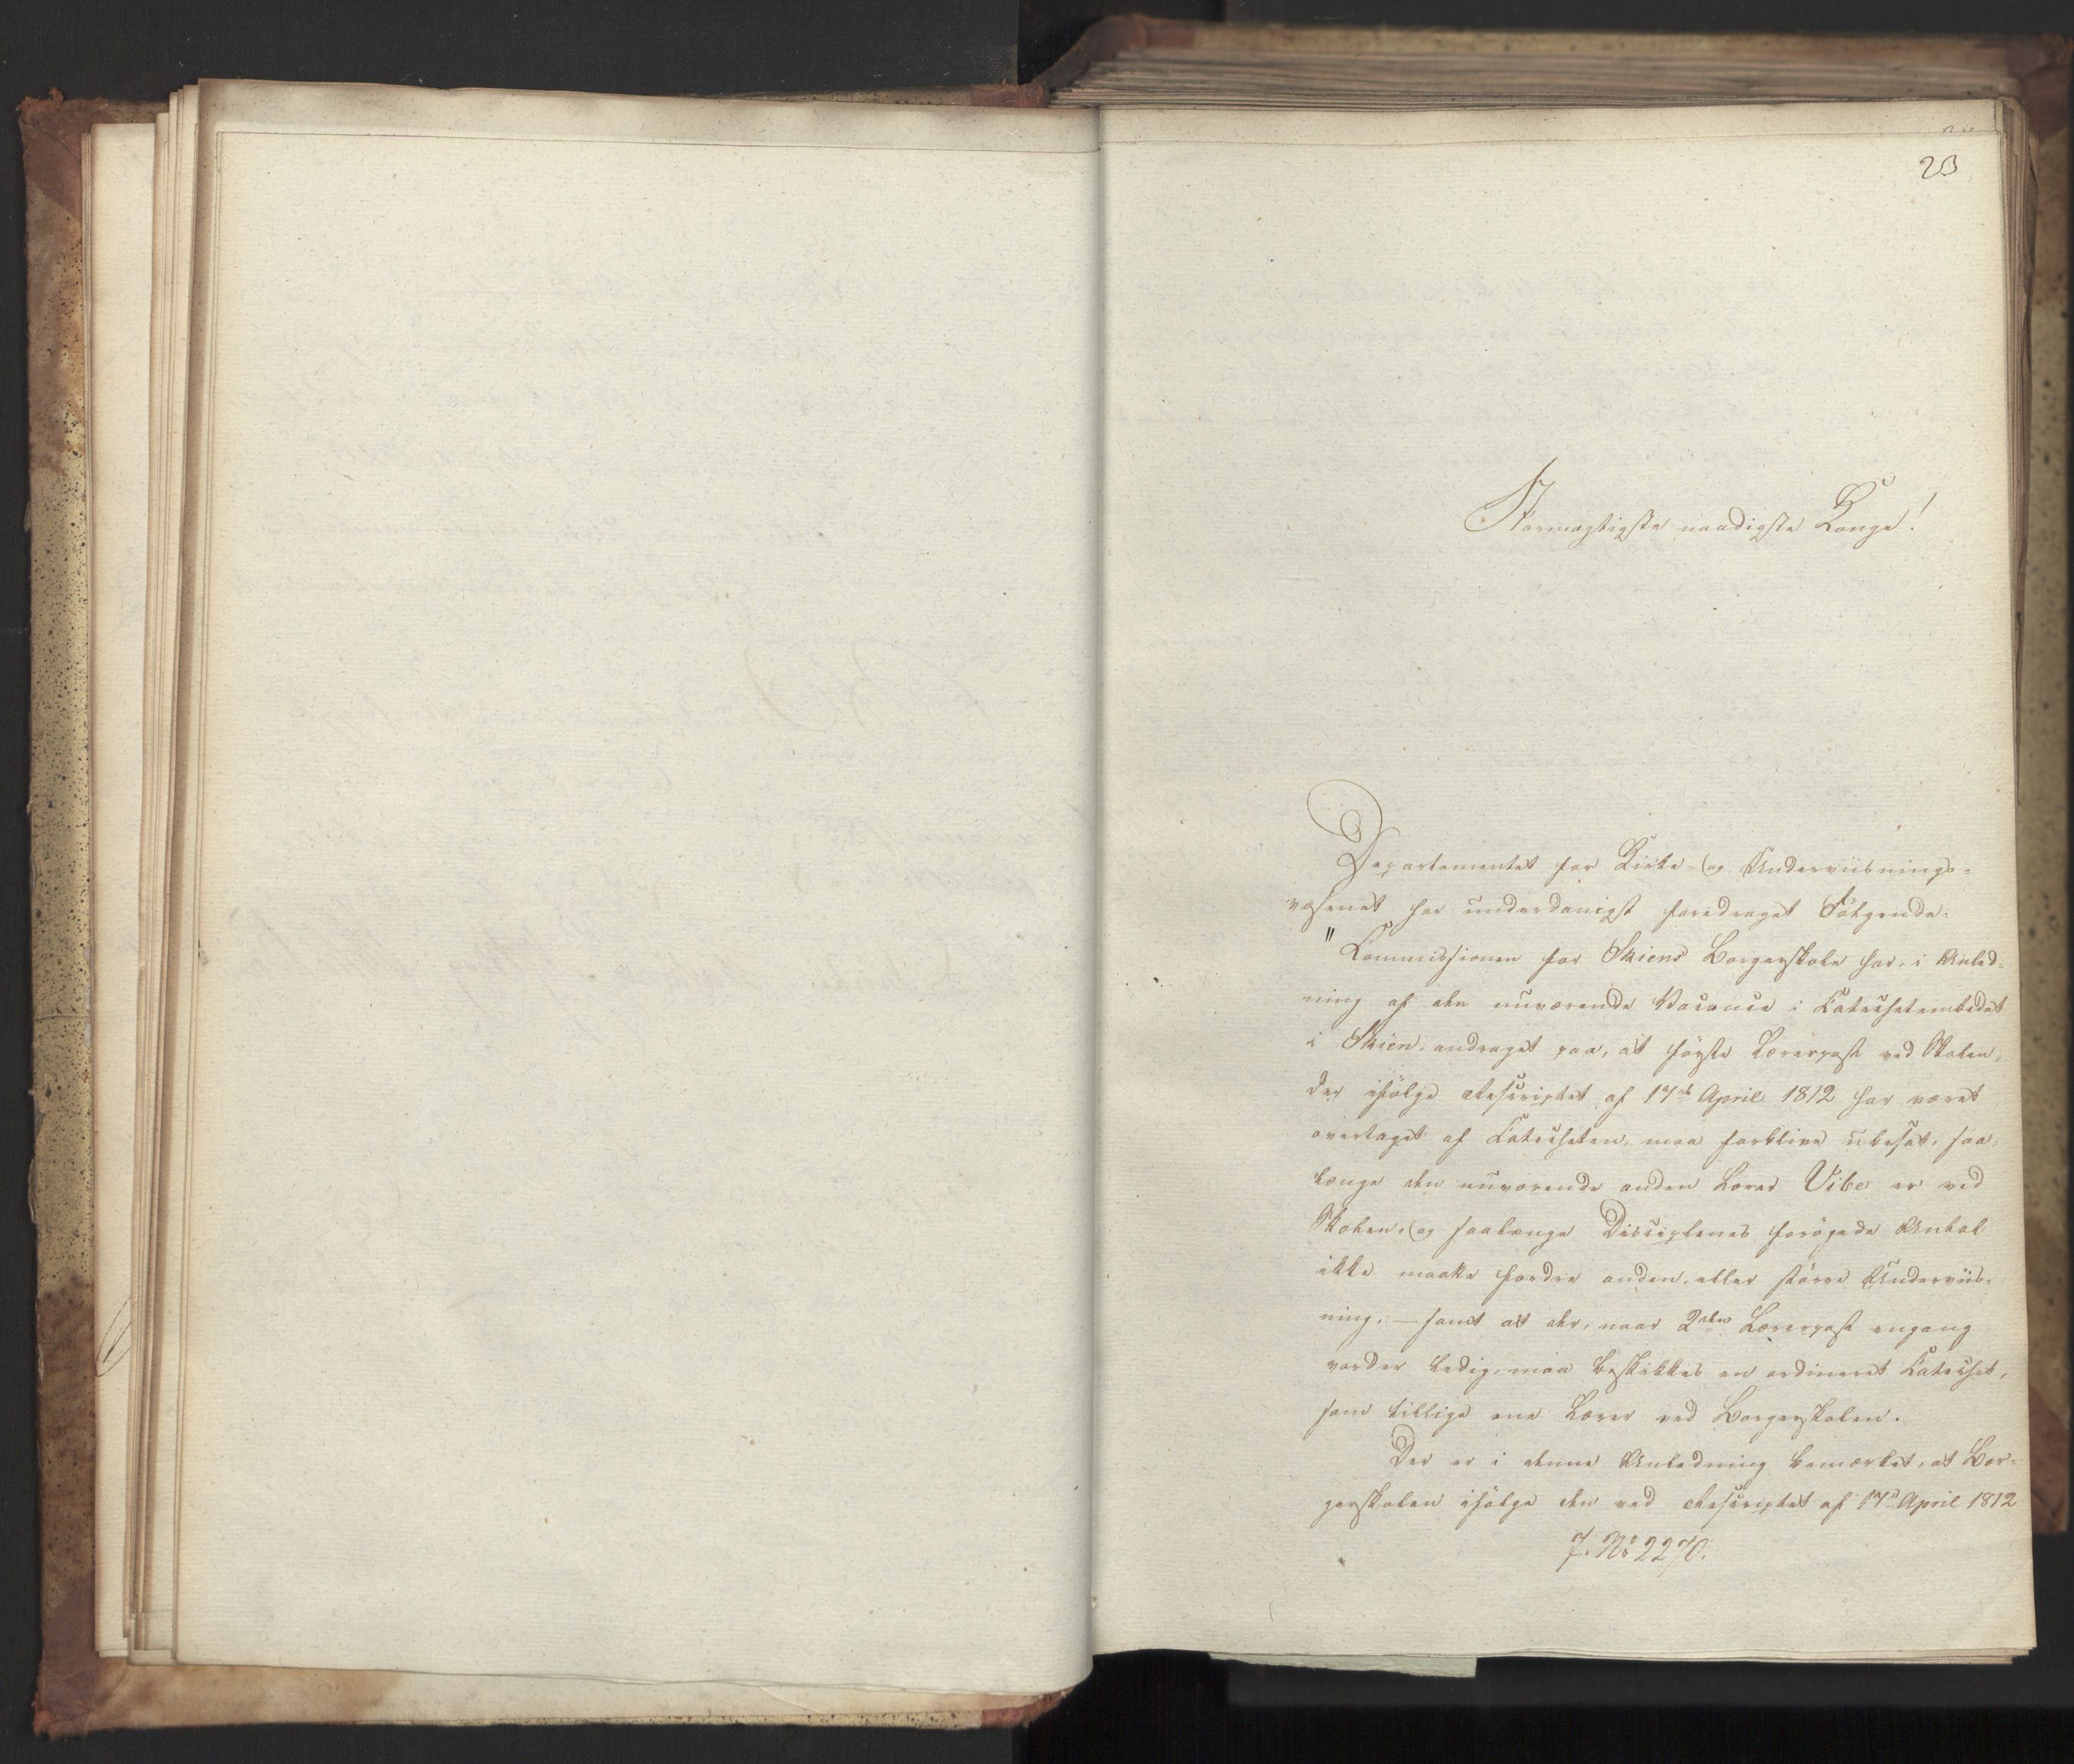 23
Stormægtigste naadigste Konge!
Departementet for Kirke- og Underviisnings-
væsenet har underdanigst foredraget Følgende:
"Commissionen for Skiens Borgerskole har, i Anled-
ning af den nuværende Vacance i Catechetembedet
i Skien, andraget paa, at første Lærerpost ved Skolen,
der ifølge Rescriptet af 17de April 1812 har været
overtaget af Catecheten, maa forblive ubesat, saa-
længe den nuværende anden Lærer Vibe er ved
Skolen, og saalænge Disciplenes forøgede Antal
ikke maatte fordre anden eller større Underviis-
ning, — samt at der, naar 2den Lærerpost engang
vorder ledig, maa beskikkes en ordineret Catechet,
som tillige ene Lærer ved Borgerskolen.
Der er i denne Anledning bemærket, at Bor-
gerskolen ifølge den ved Rescriptet af 17d April 1812
J. No 2270.